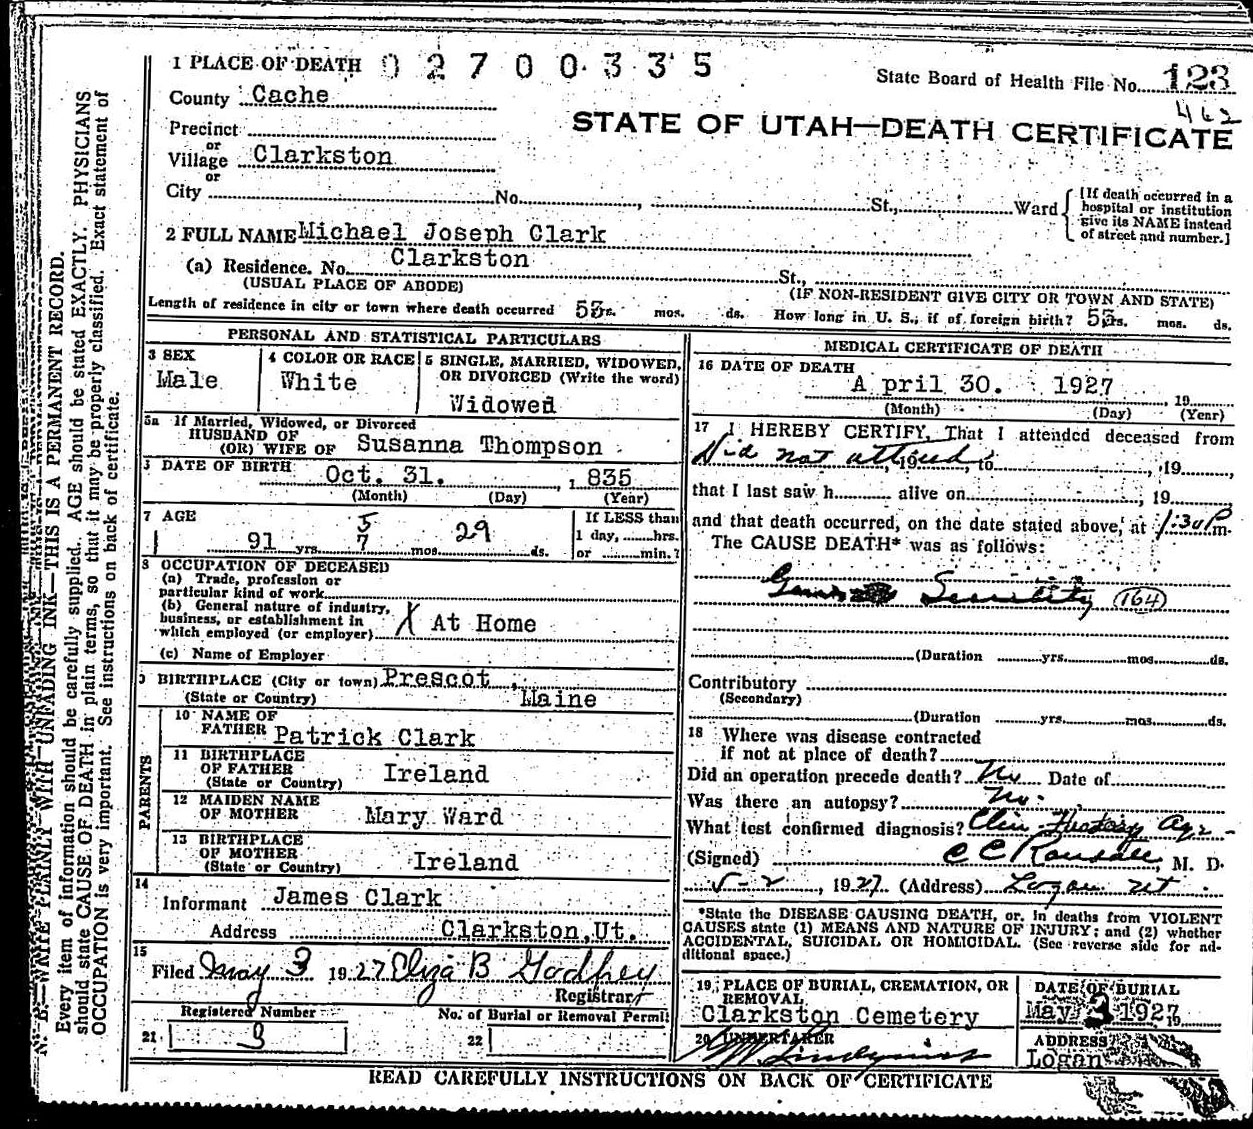 1 PLACE OF DEATH 0 2 7 0 0 3 3 5
State Board of Health File No. 123
462
County Cache
STATE OF UTAH—DEATH CERTIFICATE
Precinct
or
Village Clarkston
or
City No. , St., Ward
[If death occurred in a
hospital or institution
give its NAME instead
of street and number.]
2 FULL NAME Michael Joseph Clark
(a) Residence. No. Clarkston St.,
(USUAL PLACE OF ABODE) (IF NON-RESIDENT GIVE CITY OR TOWN AND STATE)
Length of residence in city or town where death occurred 53 yrs. mos. ds. How long in U. S., if of foreign birth? 53 yrs. mos. ds.
PERSONAL AND STATISTICAL PARTICULARS
3 SEX
Male
4 COLOR OR RACE
White
5 SINGLE, MARRIED, WIDOWED,
OR DIVORCED (Write the word)
Widowed
5a If Married, Widowed, or Divorced
HUSBAND OF
(OR) WIFE OF Susanna Thompson
DATE OF BIRTH
Oct. 31. , 1835
(Month) (Day) (Year)
7 AGE
5
91 yrs. 7 mos. 29 ds.
If LESS than
1 day, hrs.
or min.?
8 OCCUPATION OF DECEASED
(a) Trade, profession or
particular kind of work
(b) General nature of industry,
business, or establishment in
which employed (or employer) X At Home
(c) Name of Employer
9 BIRTHPLACE (City or town) Prescot ,
(State or Country) Maine
PARENTS
10 NAME OF
FATHER Patrick Clark
11 BIRTHPLACE
OF FATHER Ireland
(State or Country)
12 MAIDEN NAME
OF MOTHER Mary Ward
13 BIRTHPLACE
OF MOTHER Ireland
(State or Country)
14
Informant James Clark
Address Clarkston, Ut.
15
Filed May 3 1927 Eliza B Godfrey
Registrar
Registered Number
21 3
No. of Burial or Removal Permit
22
MEDICAL CERTIFICATE OF DEATH
16 DATE OF DEATH
A pril 30. 1927 , 19
(Month) (Day) (Year)
17 I HEREBY CERTIFY, That I attended deceased from
Did not attend , 19 to , 19 ,
that I last saw h alive on , 19
and that death occurred, on the date stated above, at 1:30 P m.
The CAUSE DEATH* was as follows:
Senility (164)
(Duration yrs. mos. ds.
Contributory
(Secondary)
(Duration yrs. mos. ds.
18 Where was disease contracted
if not at place of death?
Did an operation precede death? No Date of
Was there an autopsy? No.
What test confirmed diagnosis? Clin. History Age
(Signed) C C Randall, M. D.
5-2 , 1927 (Address) Logan Ut
*State the DISEASE CAUSING DEATH, or, in deaths from VIOLENT
CAUSES state (1) MEANS AND NATURE OF INJURY; and (2) whether
ACCIDENTAL, SUICIDAL OR HOMICIDAL. (See reverse side for ad-
ditional space.)
19 PLACE OF BURIAL, CREMATION, OR
REMOVAL
Clarkston Cemetery
DATE OF BURIAL
May 3 1927 19
20 UNDERTAKER
Lindquist
ADDRESS
Logan
READ CAREFULLY INSTRUCTIONS ON BACK OF CERTIFICATE
N. B.—WRITE PLAINLY WITH UNFADING INK—THIS IS A PERMANENT RECORD.
Every item of information should be carefully supplied. AGE should be stated EXACTLY. PHYSICIANS
should state CAUSE OF DEATH in plain terms, so that it may be properly classified. Exact statement of
OCCUPATION is very important. See instructions on back of certificate.